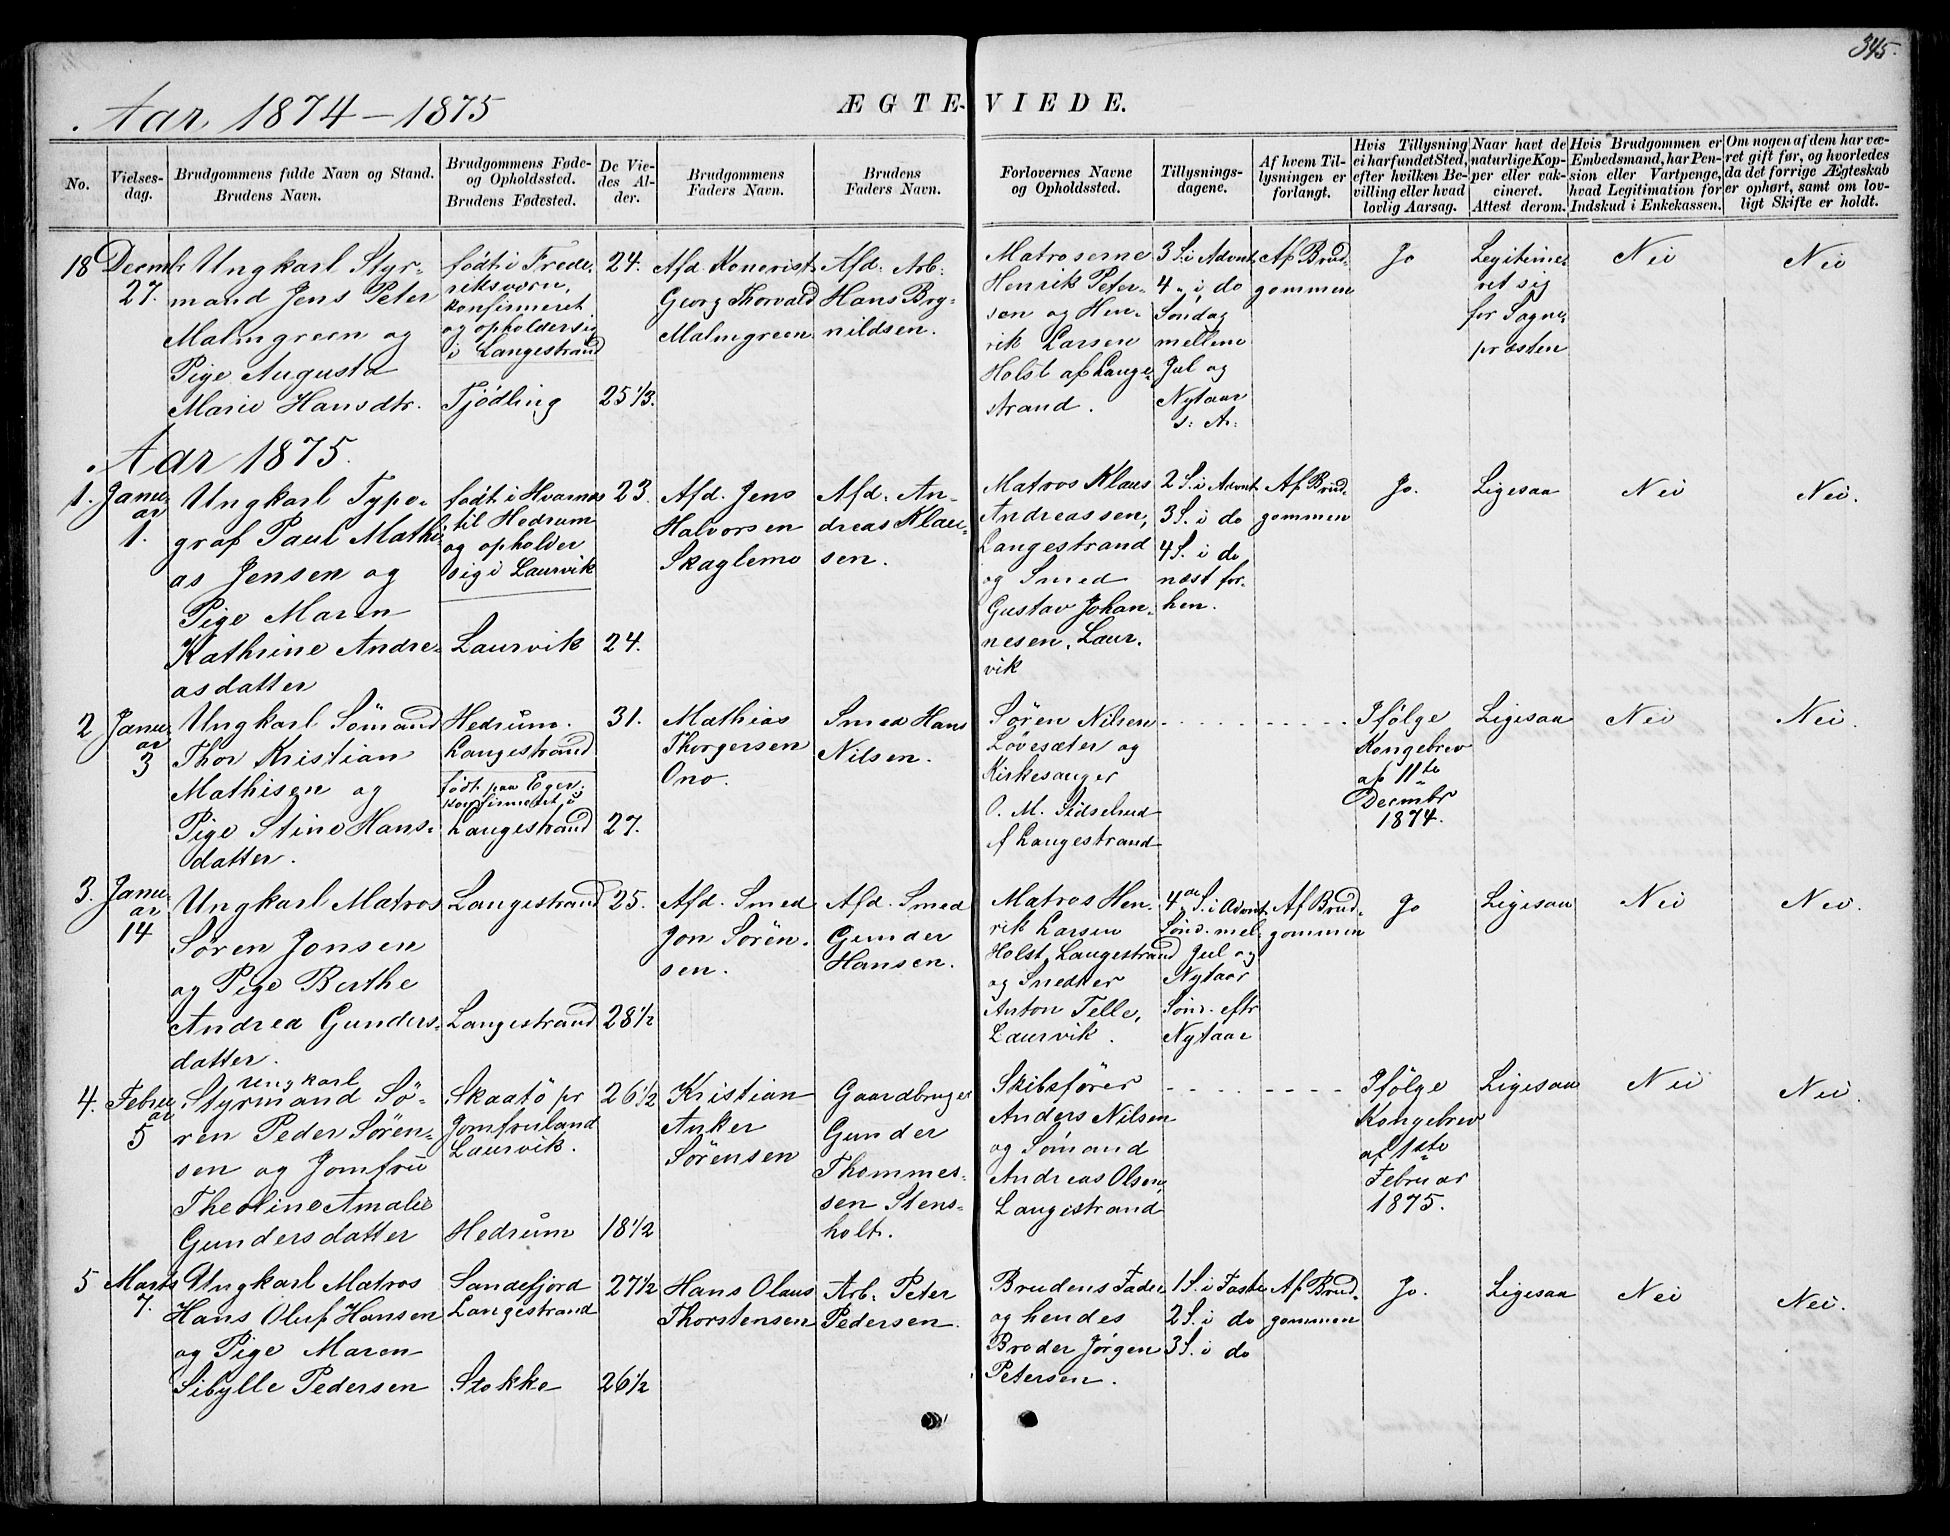 345.
Aar 1874–1875
ÆGTE-VIEDE.
No.
Vielses-
dag.
Brudgommens fulde Navn og Stand.
Brudens Navn.
Brudgommens Føde-
og Opholdssted.
Brudens Fødested.
De Vie-
des Al-
der.
Brudgommens
Faders Navn.
Brudens
Faders Navn.
Forlovernes Navne
og Opholdssted.
Tillysnings-
dagene.
Af hvem Til-
lysningen er
forlangt.
Hvis Tillysning
ei har fundet Sted,
efter hvilken Be-
villing eller hvad
lovlig Aarsag.
Naar havt de
naturlige Kop-
per eller vak-
cineret.
Attest derom.
Hvis Brudgommen er
Embedsmand, har Pen-
sion eller Vartpenge,
hvad Legitimation for
Indskud i Enkekassen.
Om nogen af dem har væ-
ret gift før, og hvorledes
da det forrige Ægteskab
er ophørt, samt om lov-
ligt Skifte er holdt.
18
Decmbr
27.
Ungkarl Styr-
mand Jens Peter
Malmgreen og
Pige Augusta
Marie Hansdtr.
født i Frede-
riksværn,
konfirmeret
og opholder sig
i Langestrand
Tjödling
24.
25 1/3.
Afd.
Georg Thorvald
Malmgreen
Afd. Arb.
Hans Bry-
nildsen.
Matroserne
Henrik Peter-
sen og Hen-
rik Larsen
Holst af Lange-
strand.
3 S. i Advnt
4 " i do
Søndag
mellem
Jul og
Nytaar
s: A:
Af Brud-
gommen
Jo
Legitime-
ret sig
for Sogne-
præsten
Nei
Nei
Aar 1875.
1.
Janu-
ar
1.
Ungkarl Typo-
graf Paul Mathi-
as Jensen og
Pige Maren
Kathrine Andre-
asdatter
født i Hvarnes
til Hedrum
og opholder
sig i Laurvik
Laurvik
23.
24.
Afd. Jens
Halvorsen
Skaglemo
Afd. An-
dreas Klau-
sen.
Matros Klaus
Andreassen,
Langestrand
og Smed
Gustav Johan-
nesen, Laur-
vik
2 S. i Advnt
3 S. i do
4 S. i do
næst for-
hen.
Af Brud-
gommen
Jo.
Ligesaa
Nei
Nei.
2
Janu-
ar
3
Ungkarl Sömand
Thor Kristian
Mathisen og
Pige Stine Hans-
datter.
Hedrum.
Langestrand
født paa Eger.
konfirmeret i
Langestrand
31.
27.
Mathias
Thorgersen
Ono.
Smed Hans
Nilsen.
Søren Nilsen
Løvesæter og
Kirkesanger
O. M. Sidselrud
af Langestrand
Ifölge
Kongebrev
af 11te
Decmbr
1874.
Ligesaa
Nei
Nei.
3.
Janu-
ar
14
Ungkarl Matros
Søren Jonsen
og Pige Berthe
Andrea Gunders-
datter.
Langestrand
Langestrand
25.
28 1/2
Afd. Smed
Jon Sören-
sen.
Afd. Smed
Gunder
Hansen.
Matros Hen-
rik Larsen
Holst, Langestrand
og Snedker
Anton Telle,
Laurvik.
4de S. i Advnt.
Sönd. mel.
Jul og
Nytaar
Sönd. eftr
Nytaar
Af Brud-
gommen
Jo
Ligesaa
Nei
Nei.
4.
Febru-
ar
5
Ungkarl
Styrmand Sö-
ren Peder Sören-
sen og Jomfru
Theoline Amalie
Gundersdatter
Skaatö pr
Jomfruland
Laurvik.
Hedrum
26 1/2
18 1/2
Kristian
Anker
Sörensen
Gaardbruger
Gunder
Thommes-
sen Stens-
holt.
Skibsfører
Anders Nilsen
og Sömand
Andreas Olsen,
Langestrand
Ifölge
Kongebrev
af 1ste
Februar
1875.
Ligesaa
Nei
Nei.
5
Marts
7.
Ungkarl Matros
Hans Oluf Hansen
og Pige Maren
Sibylle Pedersen
Sandefjord
Langestrand
Stokke
27 1/2
26 1/2
Hans Olaus
Thorstensen
Arb. Peter
Pedersen.
Brudens Fader
og hendes
Broder Jörgen
Petersen.
1 S. i Faste
2 S. i do
3 S. i do
Af Brud-
gommen
Jo.
Ligesaa
Nei
Nei.